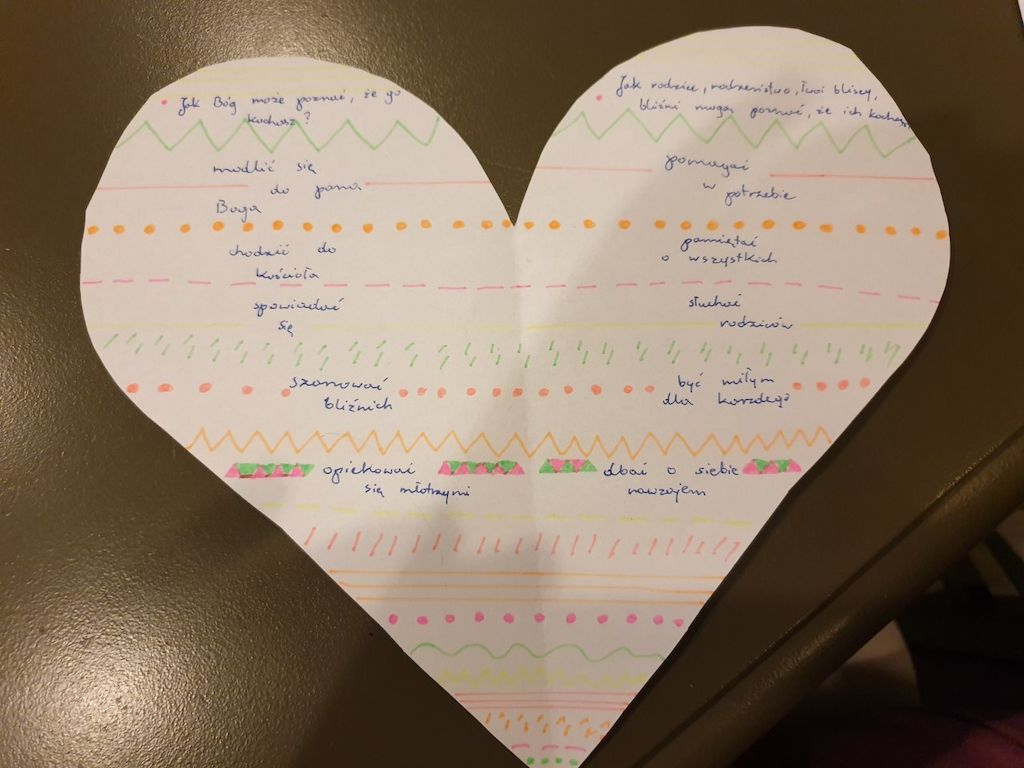 Jak Bóg może poznać, że go
kochasz?
modlić się
do pana
Boga
chodzić do
kościoła
spowiadać
się
szanować
bliźnich
opiekować
się młotrzymi
Jak rodzice, rodzeństwo, Twoi bliscy,
bliźni mogą poznać, że ich kochasz
pomagać
w potrzebie
pamiętać
o wszystkich
słuchać
rodziców
być miłym
dla karzdego
dbać o siebie
nawzajem